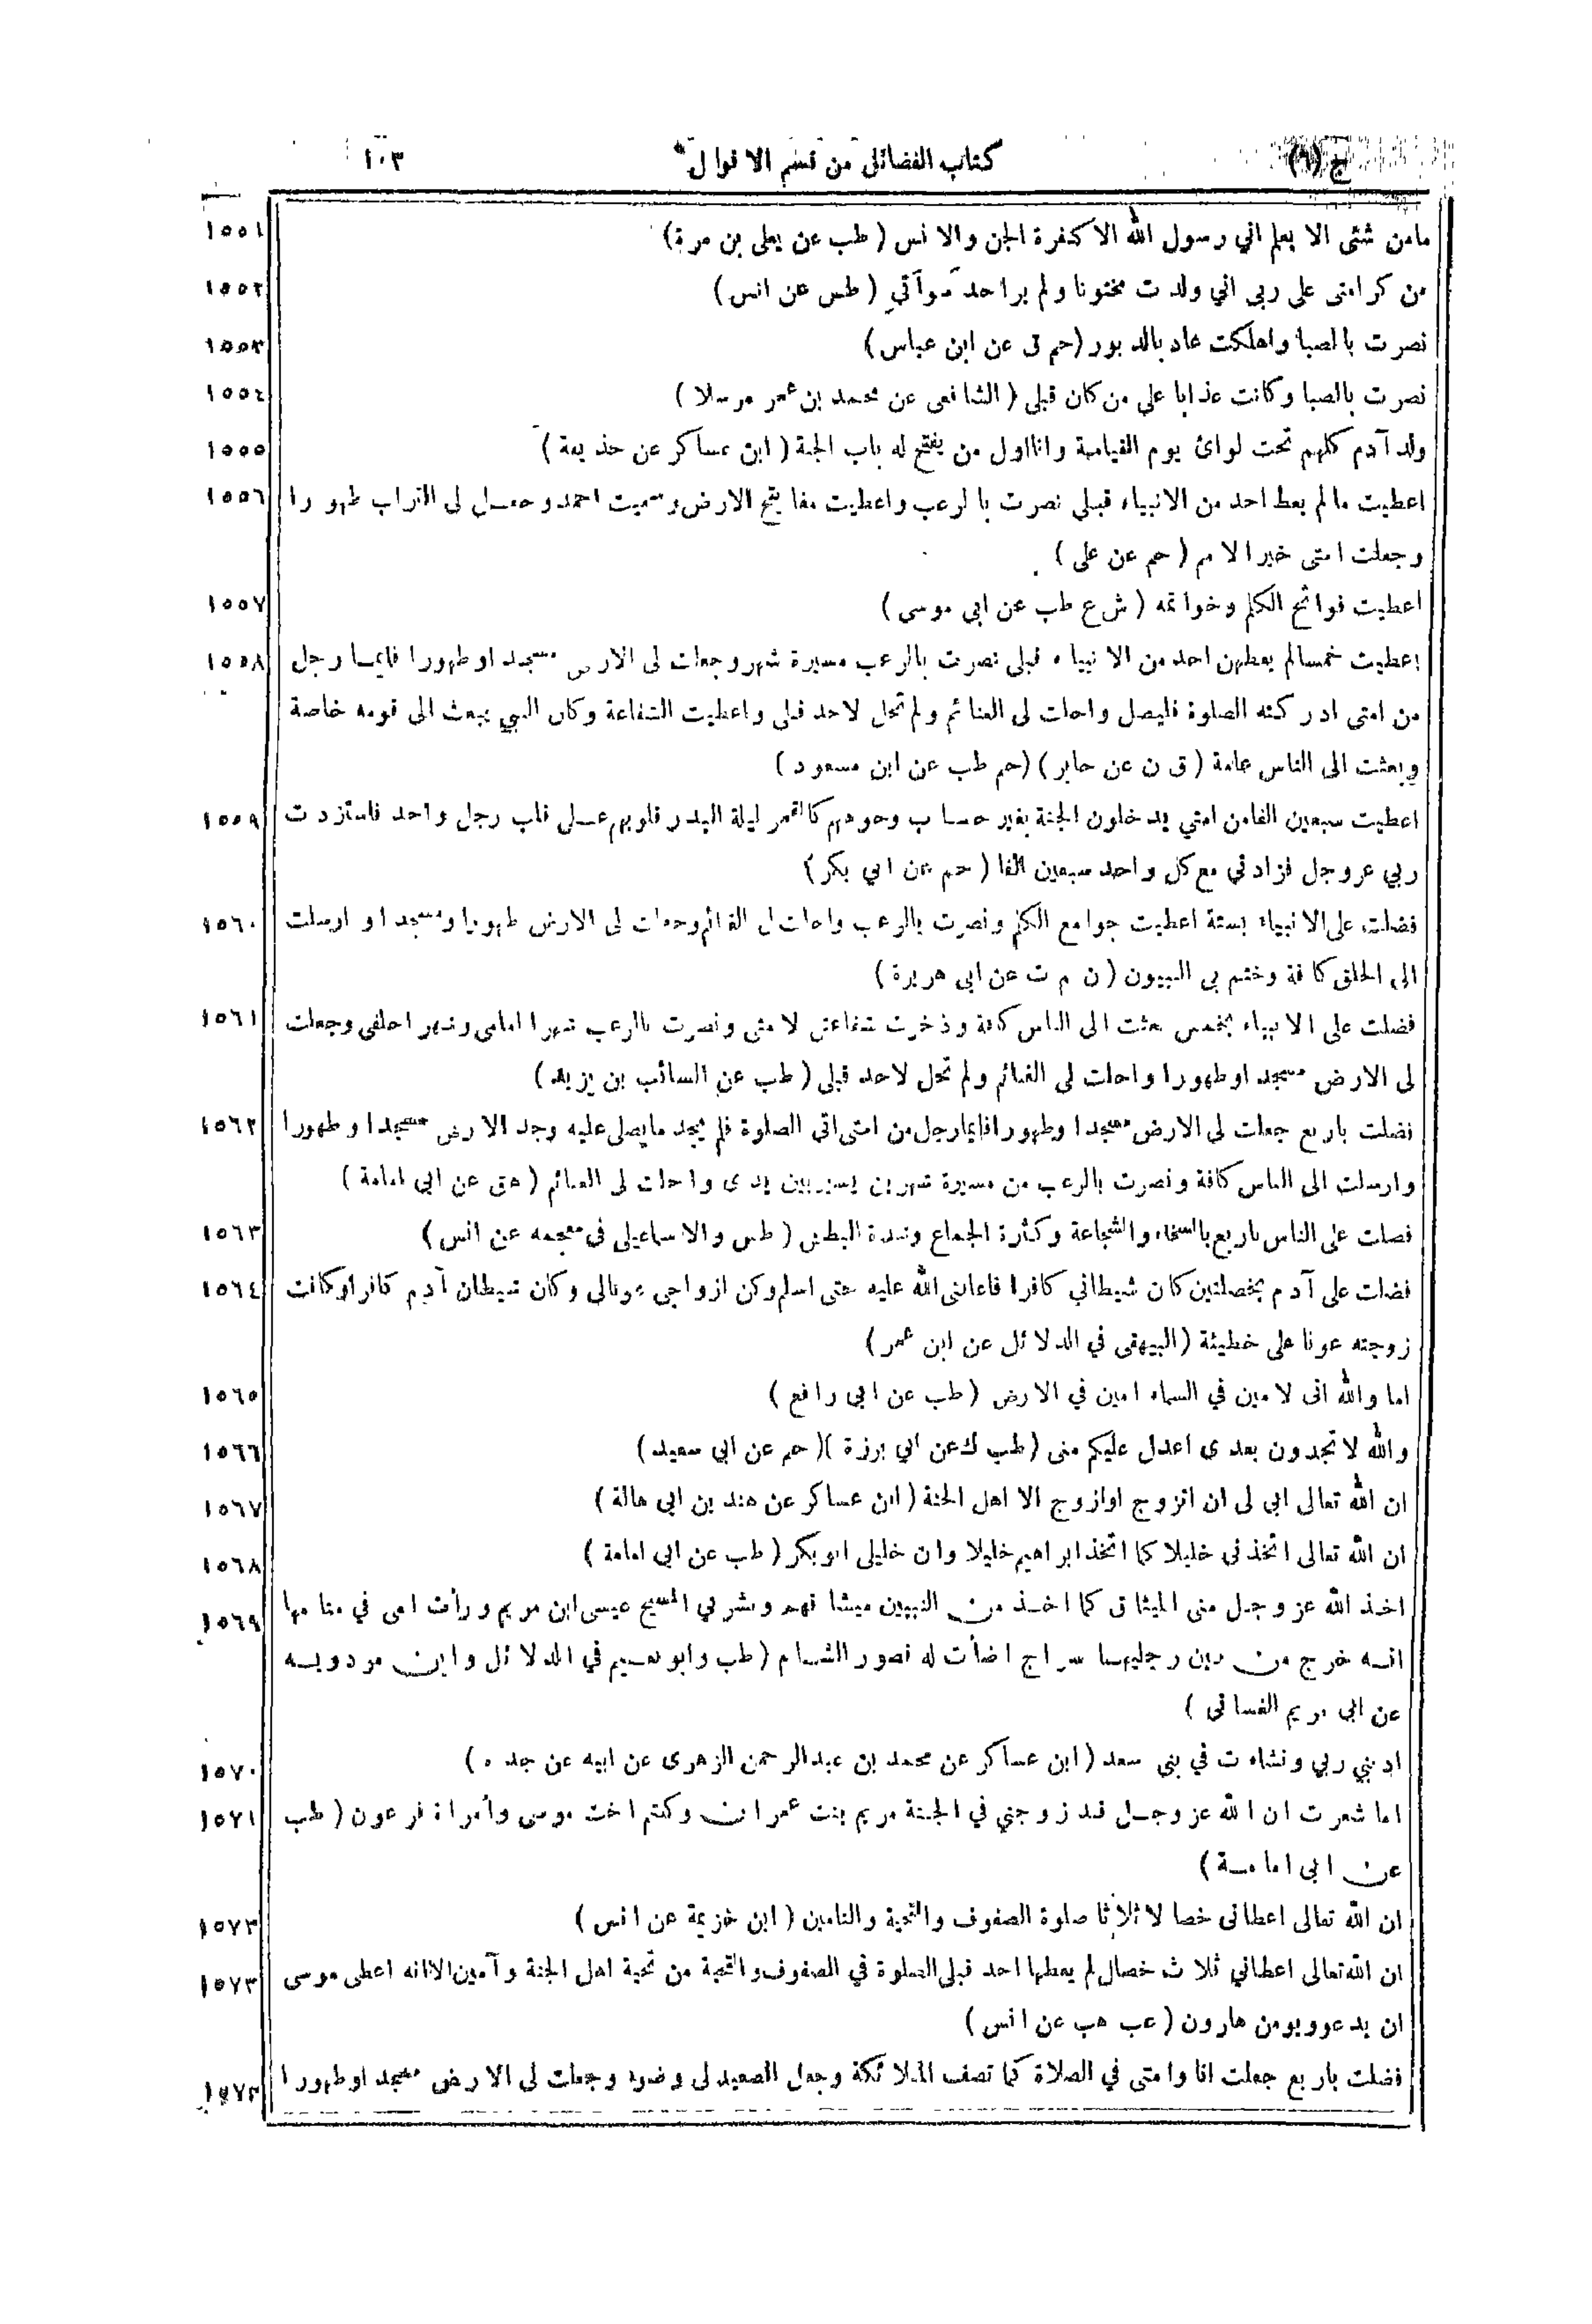 ج (٦) كتاب الفضائل من قسم الاقوال ١٠٣
مامن شئى الا يعلم اني رسول الله الا كفرة الجن والانس (طب عن يعلى بن مرة) ١٥٥١
من كرامتى على ربى اني ولدت مختونا ولم يراحد سوآتي (طس عن انس) ١٥٥٢
نصرت بالصبا واهلكت عاد بالدبور (حم ق عن ابن عباس) ١٥٥٣
نصرت بالصبا وكانت عذابا على من كان قبلى (الشافعى عن محمد بن عمر مرسلا) ١٥٥٤
ولد آدم كلهم تحت لوائ يوم القيامة وانااول من يفتح له باب الجنة (ابن عساكر عن حذيفة) ١٥٥٥
اعطيت مالم يعط احد من الانبياء قبلي نصرت بالرعب واعطيت مفاتيح الارض وسميت احمد وجعل لى التراب طهورا ١٥٥٦
وجعلت امتى خير الامم (حم عن على)
اعطيت فواتح الكلم وخواتمه (ش ع طب عن ابي موسى) ١٥٥٧
اعطيت خمسالم يعطهن احد من الانبياء قبلى نصرت بالرعب مسيرة شهر وجعلت لى الارض مسجدا وطهورا فايما رجل ١٥٥٨
من امتى ادركته الصلوة فليصل واحلت لى الغنائم ولم تحل لاحد قبلى واعطيت الشفاعة وكان النبي يبعث الى قومه خاصة
وبعثت الى الناس عامة (ق ن عن جابر) (حم طب عن ابن مسعود)
اعطيت سبعين الفامن امتي يدخلون الجنة بغير حساب وجوههم كالقمر ليلة البدر قلوبهم على قلب رجل واحد فاستزدت ١٥٥٩
ربي عزوجل فزادني مع كل واحد سبعين الفا (حم عن ابي بكر)
فضلت على الانبياء بستة اعطيت جوامع الكلم ونصرت بالرعب واحلت لى الغنائم وجعلت لى الارض طهورا ومسجدا وارسلت ١٥٦٠
الى الخلق كافة وختم بي النبيون (ن م ت عن ابى هريرة)
فضلت على الانبياء بخمس بعثت الى الناس كافة وذخرت شفاعتى لامتى ونصرت بالرعب شهرا امامى وشهرا خلفى وجعلت ١٥٦١
لى الارض مسجدا وطهورا واحلت لى الغنائم ولم تحل لاحد قبلى (طب عن السائب بن يزيد)
فضلت باربع جعلت لى الارض مسجدا وطهورا فايمارجل من امتى اتى الصلوة فلم يجد مايصلى عليه وجد الارض مسجدا وطهورا ١٥٦٢
وارسلت الى الناس كافة ونصرت بالرعب من مسيرة شهرين يسير بين يدى واحلت لى الغنائم (هق عن ابي امامة)
فضلت على الناس باربع بالسخاء والشجاعة وكثرة الجماع وشدة البطش (طس والاسماعيلى فى معجمه عن انس) ١٥٦٣
فضلت على آدم بخصلتين كان شيطاني كافرا فاعاننى الله عليه حتى اسلم وكن ازواجى عونالى وكان شيطان آدم كافرا وكانت ١٥٦٤
زوجته عونا على خطيئة (البيهقى في الدلائل عن ابن عمر)
اما والله انى لامين في السماء امين في الارض (طب عن ابى رافع) ١٥٦٥
والله لاتجدون بعدى اعدل عليكم منى (طب ك عن ابي برزة) (حم عن ابي سعيد) ١٥٦٦
ان الله تعالى ابي لى ان اتزوج اوازوج الا اهل الجنة (ابن عساكر عن هند بن ابي هالة) ١٥٦٧
ان الله تعالى اتخذنى خليلا كما اتخذ ابراهيم خليلا وان خليلى ابوبكر (طب عن ابى امامة) ١٥٦٨
اخذ الله عزوجل منى الميثاق كما اخذ من النبيين ميثاقهم وبشربي المسيح عيسى ابن مريم ورأت امى في منامها ١٥٦٩
انه خرج من بين رجليها سراج اضأت له قصور الشام (طب وابو نعيم في الدلائل وابن مردويه
عن ابى مريم الغسانى)
ادبني ربي ونشاءت في بنى سعد (ابن عساكر عن محمد بن عبدالرحمن الزهرى عن ابيه عن جده) ١٥٧٠
اما شعرت ان الله عزوجل قد زوجني في الجنة مريم بنت عمران وكلثم اخت موسى وأمراة فرعون (طب ١٥٧١
عن ابى امامة)
ان الله تعالى اعطانى خصالا ثلاثا صلوة الصفوف والتحية والتامين (ابن خزيمة عن انس) ١٥٧٢
ان الله تعالى اعطاني ثلاث خصال لم يعطها احد قبلى الصلوة في الصفوف والتحية من تحية اهل الجنة وآمين الاانه اعطى موسى ١٥٧٣
ان يدعو ويؤمن هارون (عب هب عن انس)
فضلت باربع جعلت انا وامتى في الصلاة كما تصف الملائكة وجعل الصعيد لى وضوء وجعلت لى الارض مسجدا وطهورا ١٥٧٤